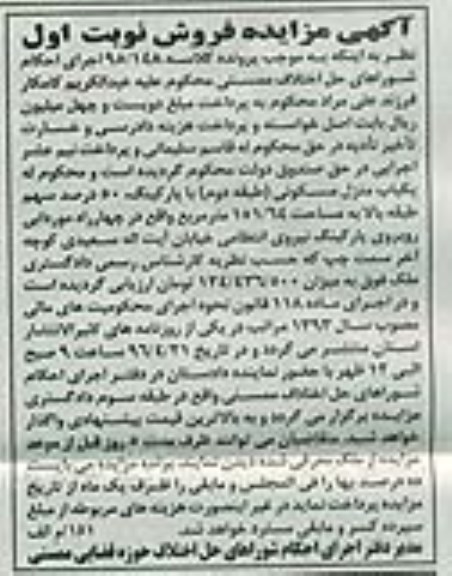 آگهی مزایده فروش نوبت اول
نظر به اینکه به موجب پرونده کلاسه ۹۸/۱۴۸ اجرای احکام
شوراهای حل اختلاف ممسنی محکوم علیه عبدالکریم کامکار
فرزند علی مراد محکوم به پرداخت مبلغ دویست و چهل میلیون
ریال بابت اصل خواسته و پرداخت هزینه دادرسی و خسارت
تأخیر تأدیه در حق محکوم له قاسم سلیمانی و پرداخت نیم عشر
اجرایی در حق صندوق دولت محکوم گردیده است و محکوم له
یکباب منزل مسکونی (طبقه دوم) با پارکینگ، ۵۰ درصد سهم
طبقه بالا به مساحت ۱۵۱/۶۴ مترمربع واقع در چهارراه
روبروی پارکینگ نیروی انتظامی خیابان آیت اله سعیدی کوچه
آخر سمت چپ که حسب نظریه کارشناس رسمی دادگستری
ملک فوق به میزان ۱۳۴/۴۳۶/۵۰۰ تومان ارزیابی گردیده است
و در اجرای ماده ۱۱۸ قانون نحوه اجرای محکومیت های مالی
مصوب سال ۱۳۹۳ مراتب در یکی از روزنامه های کثیرالانتشار
استان منتشر می گردد و در تاریخ ۹۶/۴/۳۱ ساعت ۹ صبح
الی ۱۲ ظهر با حضور نماینده دادستان در دفتر اجرای احکام
شوراهای حل اختلاف ممسنی واقع در طبقه سوم دادگستری
مزایده برگزار می گردد و به بالاترین قیمت پیشنهادی واگذار
خواهد شد. متقاضیان می توانند ظرف مدت ۵ روز قبل از موعد
مزایده از ملک معرفی شده دیدن نمایند. برنده مزایده می بایست
ده درصد بها را فی المجلس و مابقی را ظرف یک ماه از تاریخ
مزایده پرداخت نماید در غیر اینصورت هزینه های مربوطه از مبلغ
سپرده کسر و مابقی مسترد خواهد شد. ۱۵۱/م الف
مدیر دفتر اجرای احکام شوراهای حل اختلاف حوزه قضایی ممسنی